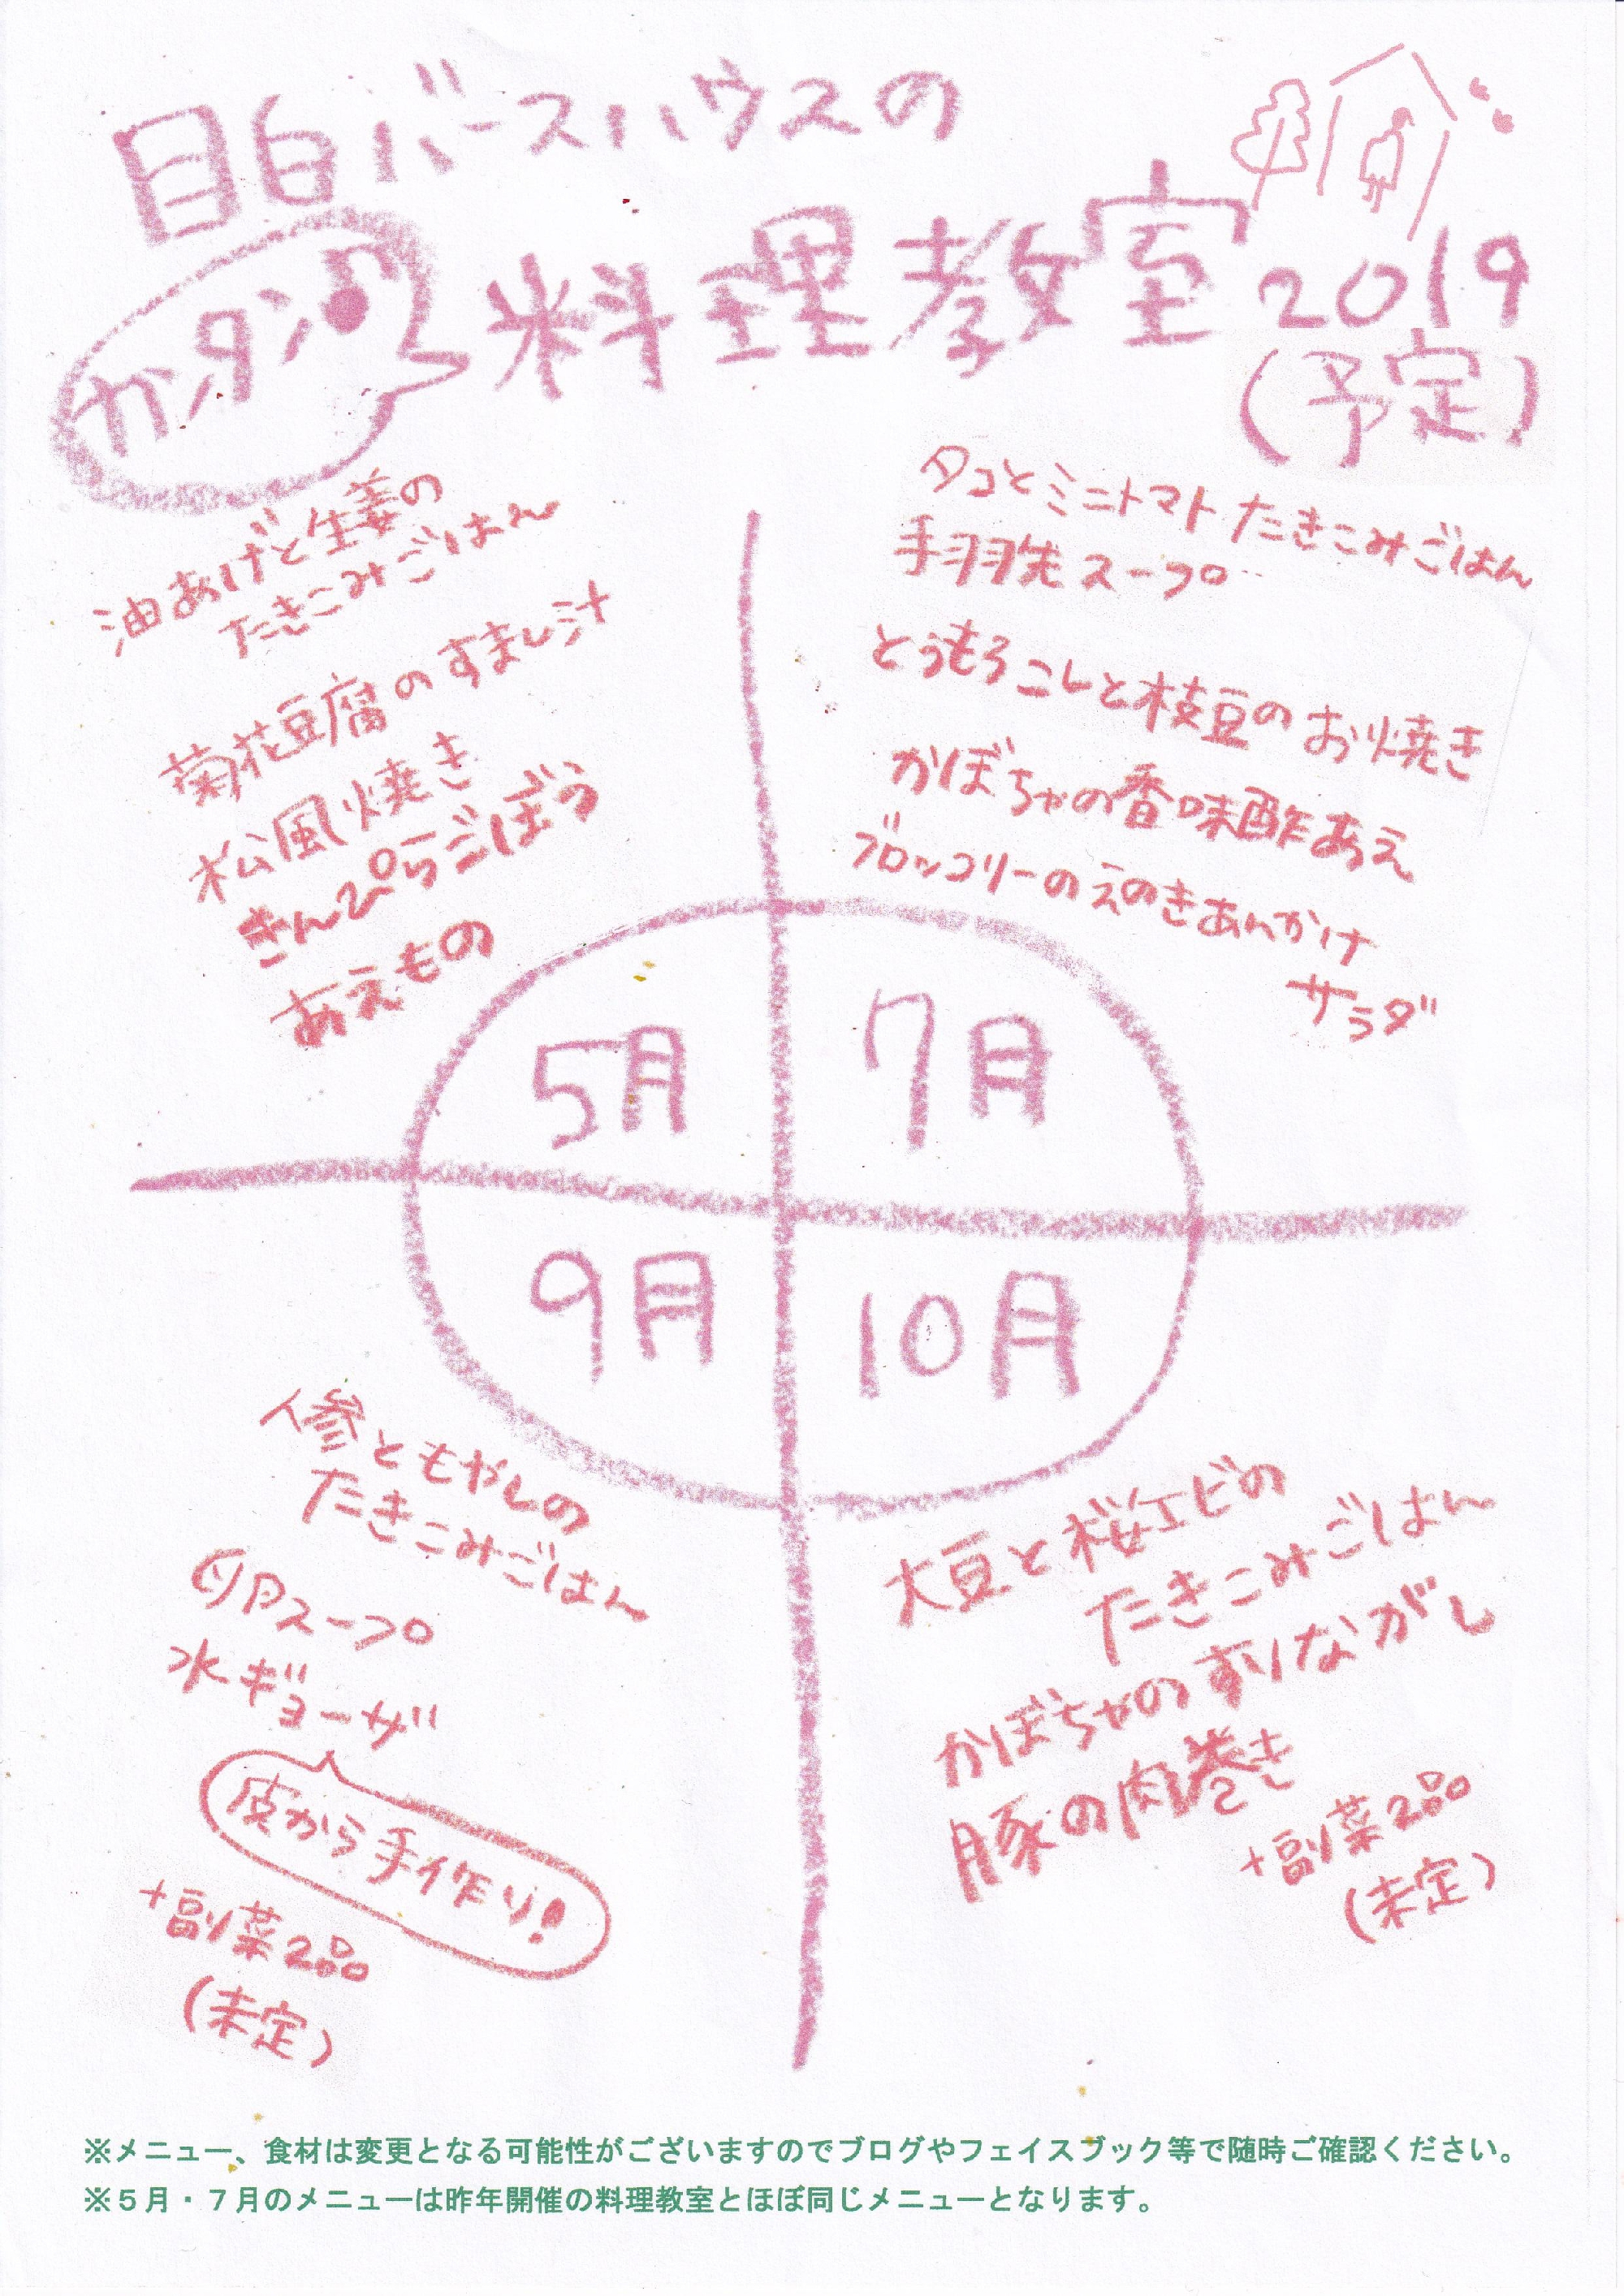 目白バースハウスの
カンタン♪
料理教室 2019
(予定)
油あげと生姜の
たきこみごはん
菊花豆腐のすまし汁
松風焼き
きんぴらごぼう
あえもの
タコとミニトマトたきこみごはん
手羽先スープ
とうもろこしと枝豆のお焼き
かぼちゃの香味酢あえ
ブロッコリーのえのきあんかけ
サラダ
5月
7月
9月
10月
人参ともやしの
たきこみごはん
卵スープ
水ギョーザ
皮から手作り!
+副菜2品
(未定)
大豆と桜エビの
たきこみごはん
かぼちゃのすりながし
豚の肉巻き
+副菜2品
(未定)
※メニュー、食材は変更となる可能性がございますのでブログやフェイスブック等で随時ご確認ください。
※5月・7月のメニューは昨年開催の料理教室とほぼ同じメニューとなります。